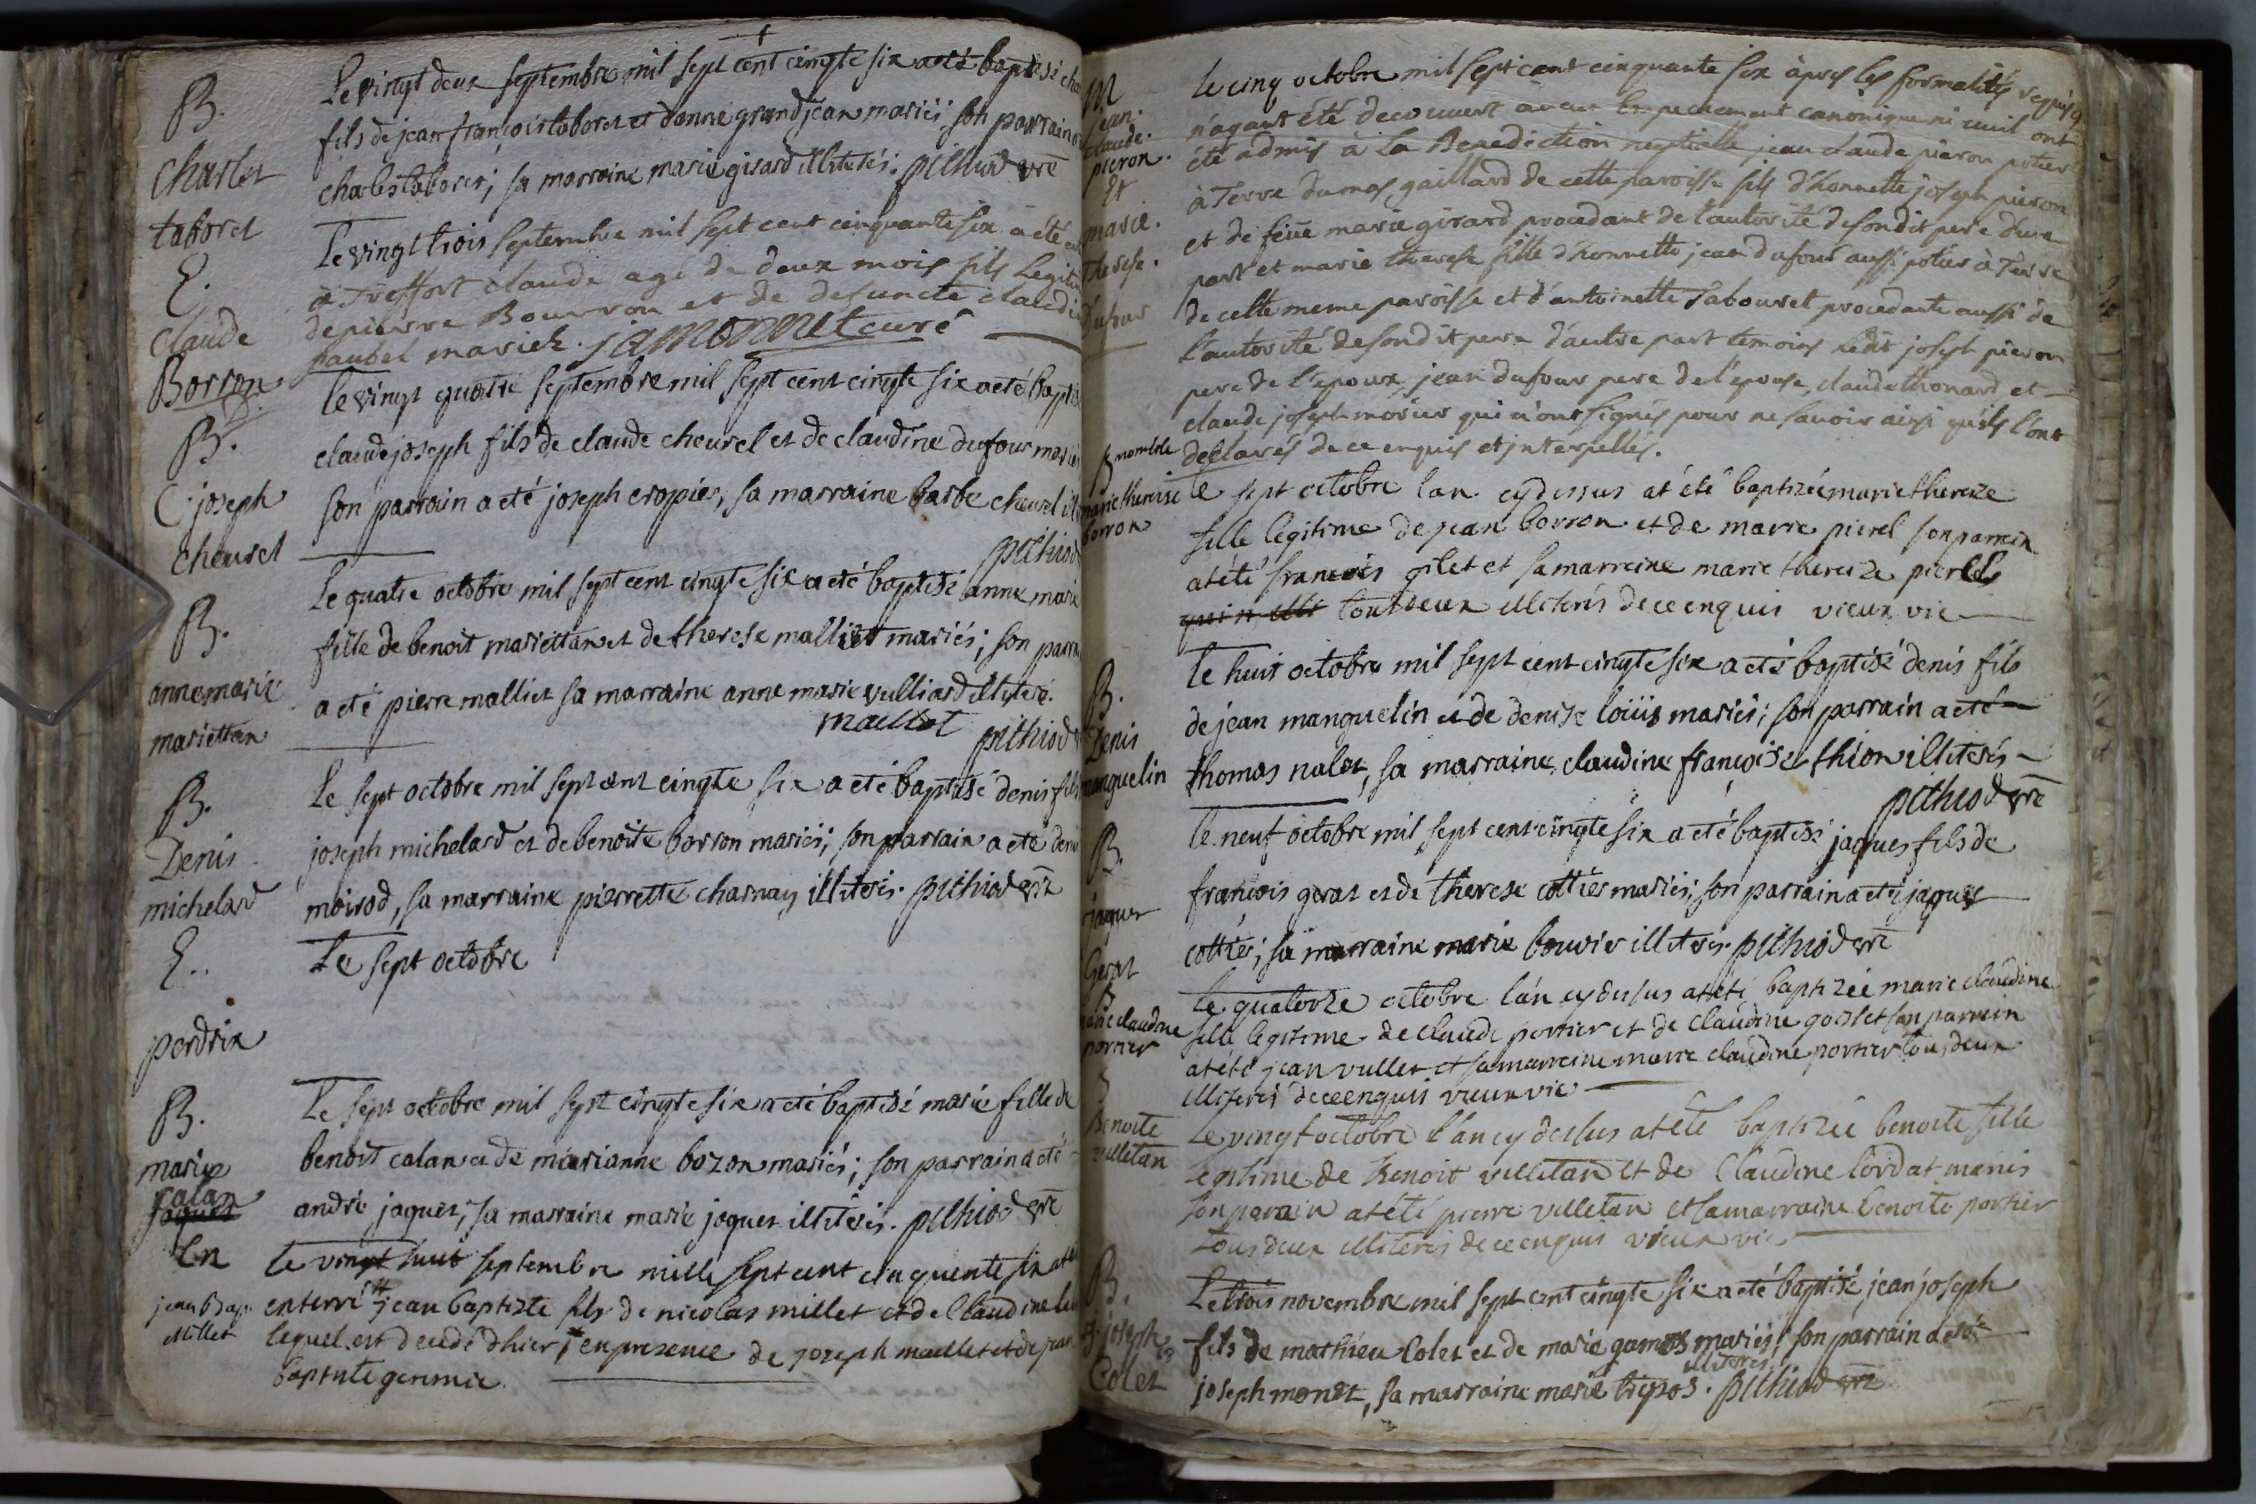 B.
charlet
taboret
Le vingt deux septembre mil sept cent cinqte six a eté baptisé
fils de jean françois taboret et danne grandjean mariés, son parrain
charles taboret; sa marraine marie girard illiterés. pithiod vre
E.
claude
Borron
Le vingt trois septembre mil sept cent cinquante six a été
a Treffort claude agé de deux mois fils legit
de pierre Bourron et de defuncte claudi
paubel mariez. jamonnet curé
B.
C. joseph
cheurel
le vingt quatre septembre mil sept cent cinqte six a eté bapt
claude joseph fils de claude cheurel et de claudine dufour mariés
son parrain a eté joseph cropier, sa marraine barbe cheurel
pithiod
B.
anne marie
mariettan
Le quatre octobre mil sept cent cinqte six a eté baptisé anne marie
fille de benoit mariettan et de therese malliet mariés; son parra
a eté pierre malliet sa marraine anne marie vulliard illiteré.
maillet pithiod
B.
Denis
michelard
Le sept octobre mil sept cent cinqte six a eté baptisé denis fils
joseph michelard et de benoite borron mariés; son parrain a eté deni
moirod, sa marraine pierrette charnay illiterés. pithiod vre
E..
perdrix
Le sept octobre
B.
marie
calan
jaquet
Le sept octobre mil sept cinqte six a eté baptisé marie fille de
benoit calan et de marianne bozon mariés; son parrain a eté
andré jaquet; sa marraine marie jaquet illiterés. pithiod vre
En
jean bap
Millet
le vingt huit septembre mille sept cent cinquente six at
enterré jean baptizte fils de nicolas millet et de Claudine
lequel est decedé dhier; en presence de joseph maillet et de jean
baptiste
M
jean
claude
pieron
Et
marie
therese
dufour
le cinq octobre mil sept cent cinquante six après les formalités requises
n'ayant été decouvert aucun empechement canonique ni civil ont
été admis à la Benediction nuptialle jean claude pieron potier
à Terre du mas gaillard de cette paroisse fils d'honnette joseph pieron
et de feüe marie girard procedant de l'autorité de son dit pere d'une
part et marie therese fille d'honnette jean dufour aussi potier à Terre
de cette meme paroisse et d'antoinette Tabouret procedante aussi de
l'autorité de son dit pere d'autre part temoins ledit joseph pieron
pere de l'epoux, jean dufour pere de l'epouse, claude thonard et
claude joseph morier qui n'ont signés pour ne savoir ainsi qu'ils l'ont
declarés de ce enquis et interpellés.
marie thereise
borron
le sept octobre lan cy dessus at été baptizée marie thereize
fille legitime de jean borron et de marie pierel son parrein
at été françois gilet et sa marreine marie thereize pierel
tout deux illiterés de ce enquis vieux vic
B.
Denis
manguelin
le huit octobre mil sept cent cinqte six a eté baptisé denis fils
de jean manguelin et de denise loüis mariés; son parrain a eté
thomas nalet, sa marraine claudine françoise thion illiterés
pithiod vre
B.
jaques
Gerat
le neuf octobre mil sept cent cinqte six a eté baptisé jaques fils de
francois gerat et de therese cottier mariés; son parrain a eté jaques
cottier; sa marraine marie bouvier illiterés. pithiod vre
B
marie claudine
portier
le quatorze octobre l'an cy dessus at été baptizée marie claudine
fille legitime de claude portier et de claudine goislet son parrein
at été jean vullet et sa marreine marie claudine portier tous deux
illiterés de ce enquis vieux vic
Benoite
villetan
Le vingt octobre l'an cy dessus at été baptizée benoite fille
legitime de Benoit villetan et de Claudine lordat mariés
son parrain at été pierre villetan et sa marraine benoite portier
tous deux illiterés de ce enquis vieux vic
B.
j. joseph
Colet
Le trois novembre mil sept cent cinqte six a eté baptisé jean joseph
fils de mathieu Colet et de marie gamos mariés; son parrain a eté
joseph monet, sa marraine marie trepos illiterés. pithiod vre